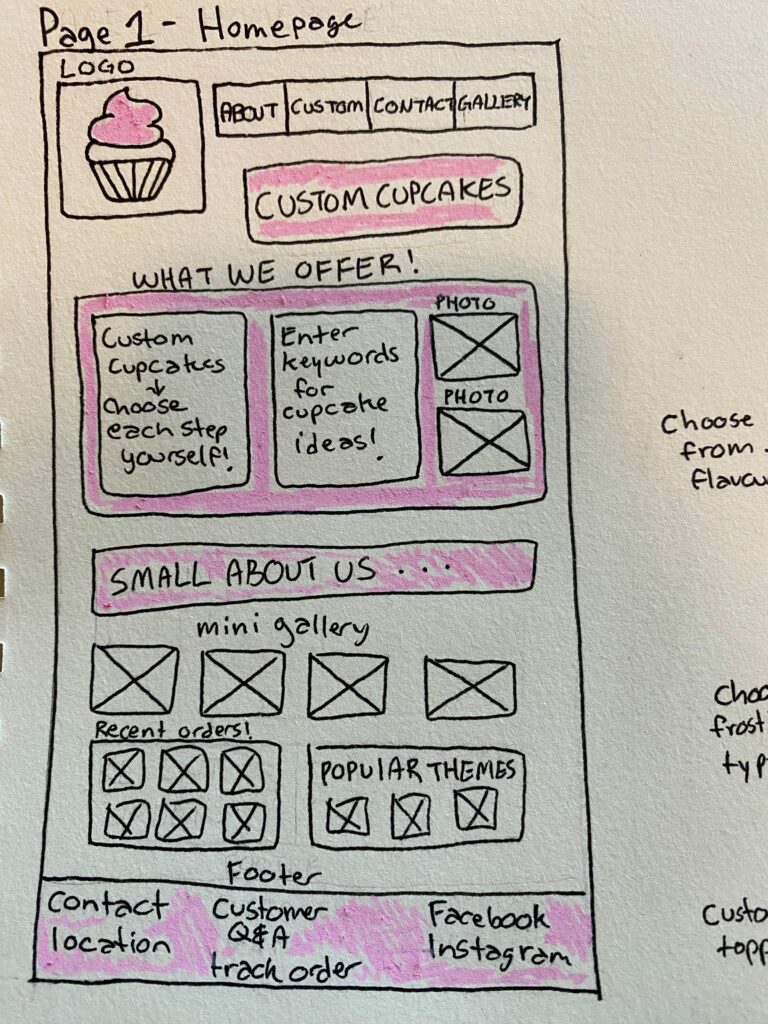 Page 1 - Homepage
LOGO
ABOUT
CUSTOM
CONTACT
GALLERY
CUSTOM CUPCAKES
WHAT WE OFFER!
Custom
Cupcakes
↓
Choose
each step
yourself!
Enter
keywords
for
cupcake
ideas!
PHOTO
PHOTO
SMALL ABOUT US ...
mini gallery
Recent orders!
POPULAR THEMES
Footer
Contact
location
Customer
Q&A
track order
Facebook
Instagram
Choose
from